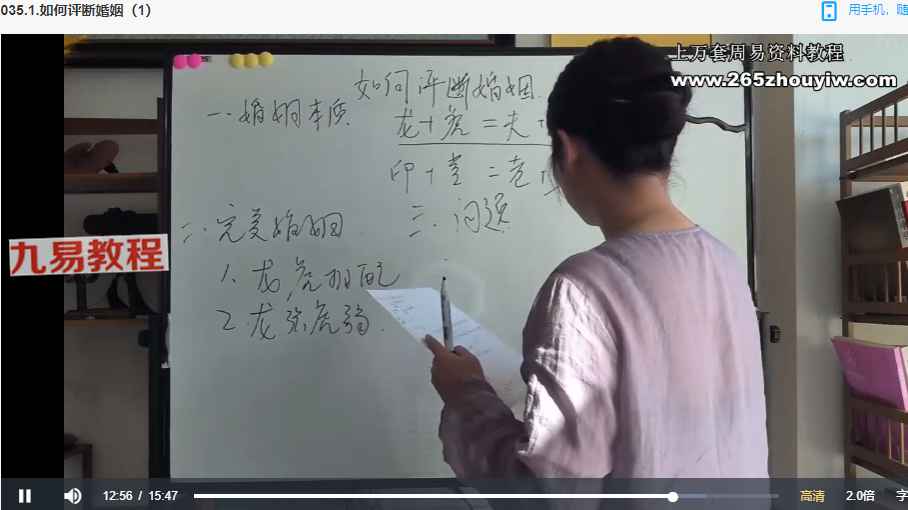 035.1.如何评断婚姻（1）
用手机，随
上万套周易资料教程
www.265zhouyiw.com
如何评断婚姻
一.婚姻本质
龙+虎=夫+
印+堂=
二.完美婚姻
三.问题
九易教程
1.龙虎相配
2.龙强虎弱
12:56 / 15:47
高清
2.0倍
字